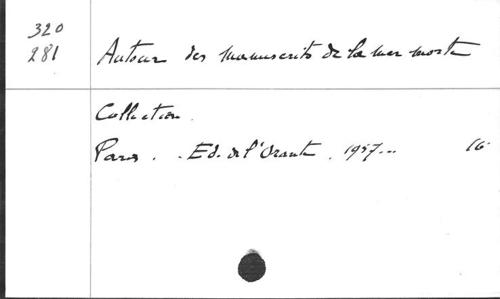 320
281
Autour des manuscrits de la mer morte
Collection.
Paris. - Ed. de l'Orante. 1957...
16